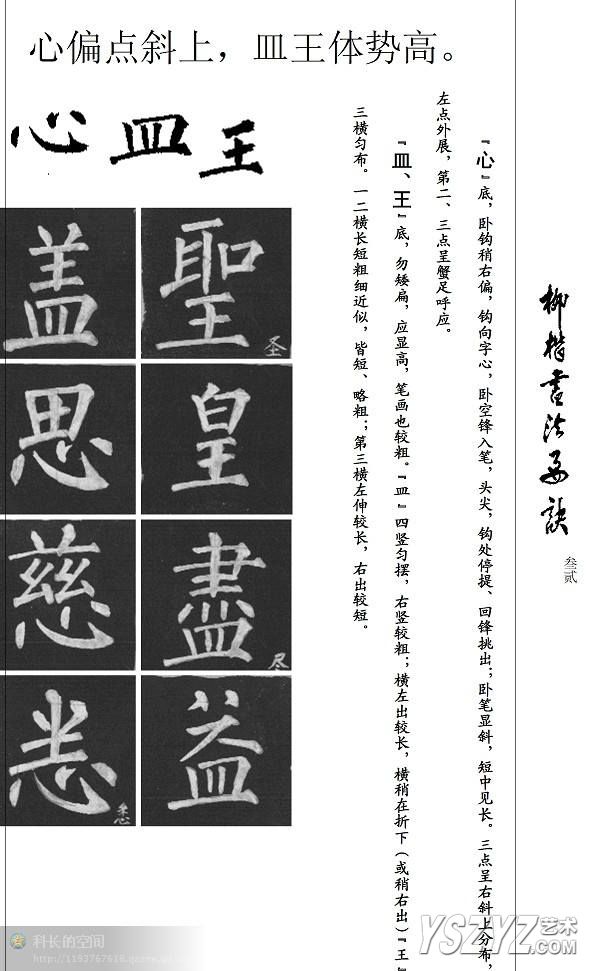 心偏点斜上，皿王体势高。
心 皿 王
『心』底，卧钩稍右偏，钩向字心，卧空锋入笔，头尖，钩处停提、回锋挑出；卧笔显斜，短中见长。三点呈右斜上分布，
左点外展，第二、三点呈蟹足呼应。
『皿、王』底，勿矮扁，应显高，笔画也较粗。『皿』四竖匀摆，右竖较粗；横左出较长，横稍在折下（或稍右出）『王』
三横匀布。一二横长短粗细近似，皆短、略粗；第三横左伸较长，右出较短。
聖 圣
皇
盡 尽
益
盖
思
慈
悉 悉
柳楷书法要诀
叁贰
科长的空间
YSZYZ艺术
.COM